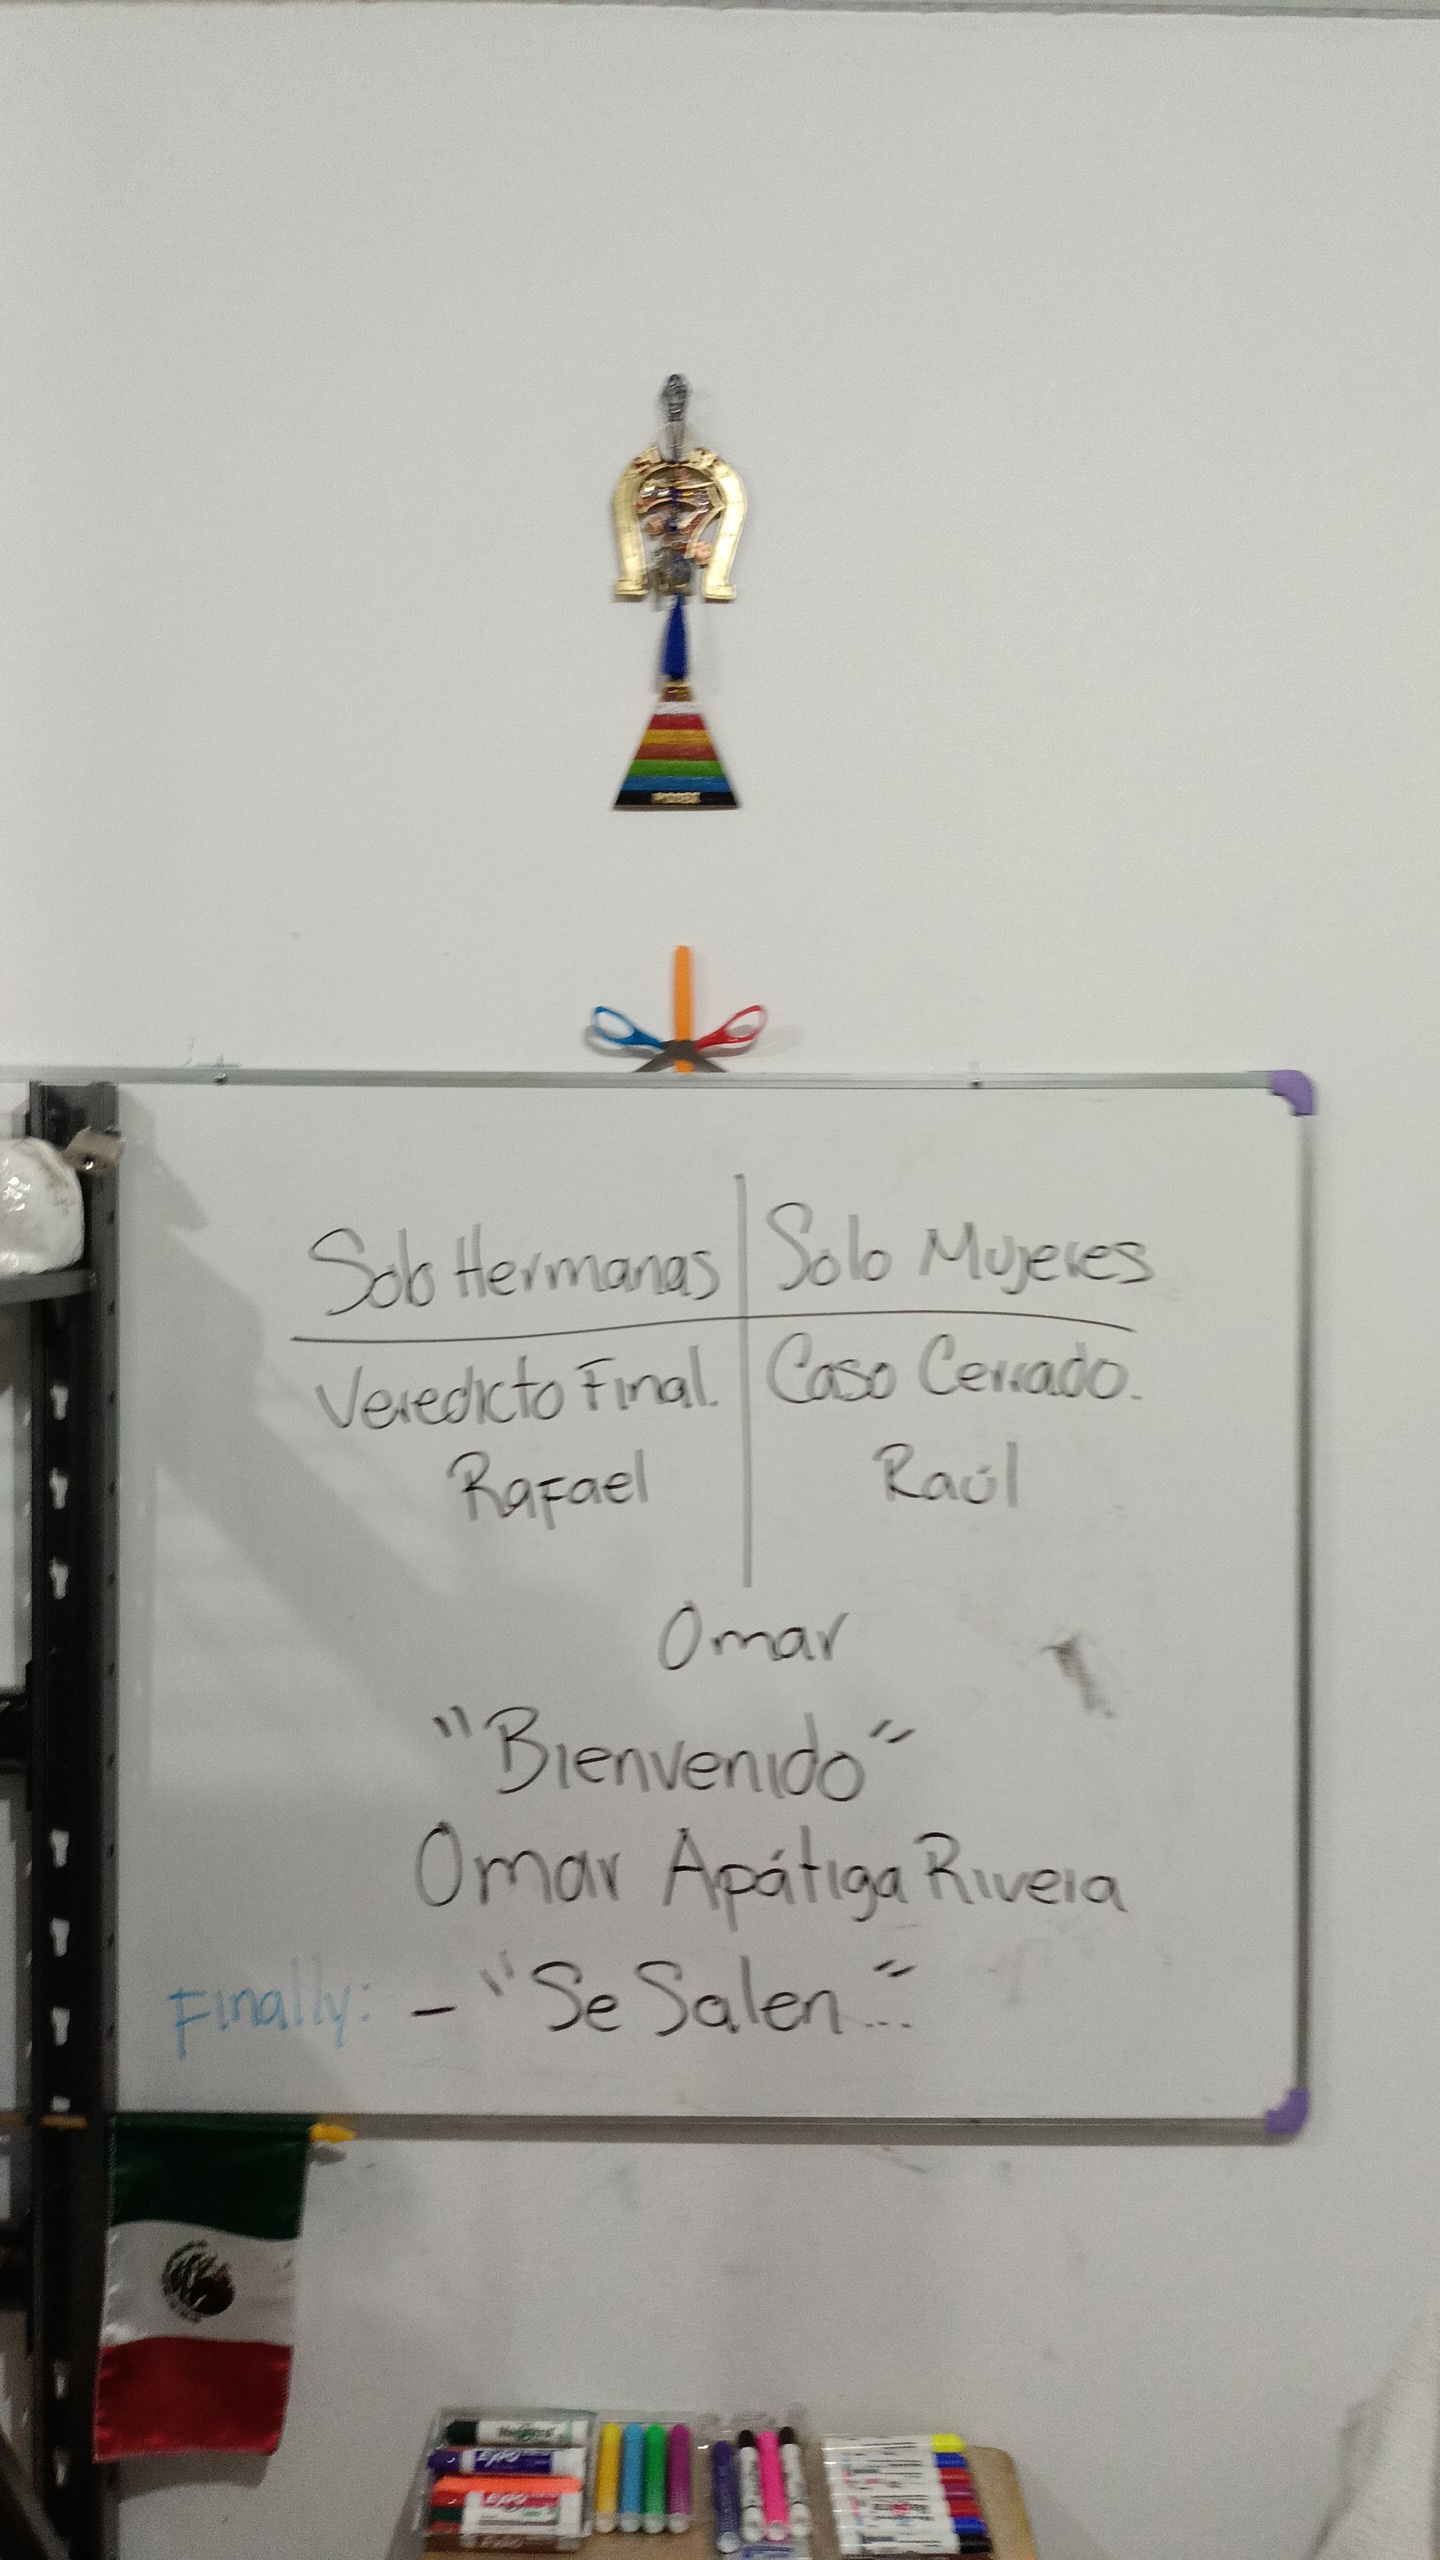 Solo Hermanas
Solo Mujeres
Veredicto Final.
Caso Cerrado.
Rafael
Raúl
Omar
"Bienvenido"
Omar Apátiga Rivera
Finally: - "Se Salen..."
EXPO
EXPO